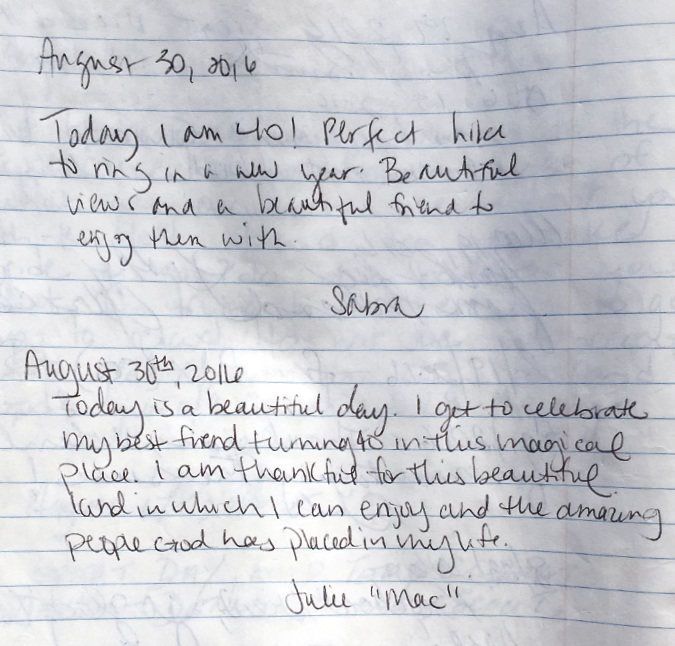 August 30, 2016
Today I am 40! Perfect hike
to ring in a new year. Beautiful
views and a beautiful friend to
enjoy them with.
Sabra
August 30th, 2016
Today is a beautiful day. I get to celebrate
my best friend turning 40 in this magical
place. I am thankful for this beautiful
land in which I can enjoy and the amazing
people God has placed in my life.
Julie "Mac"